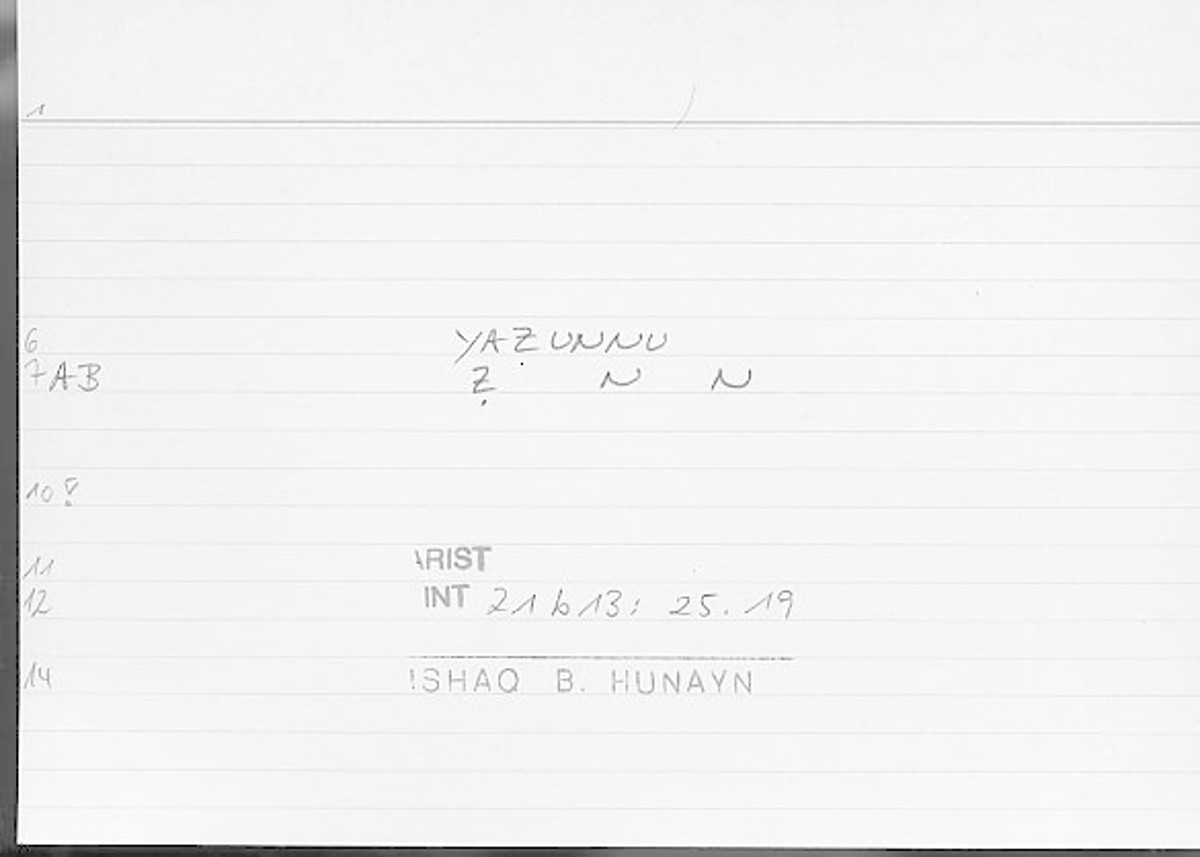 1
6 YAẒUNNU
7 AB Ẓ N N
10
11 ARIST
12 INT 21b13: 25.19
14 ISHAQ B. HUNAYN